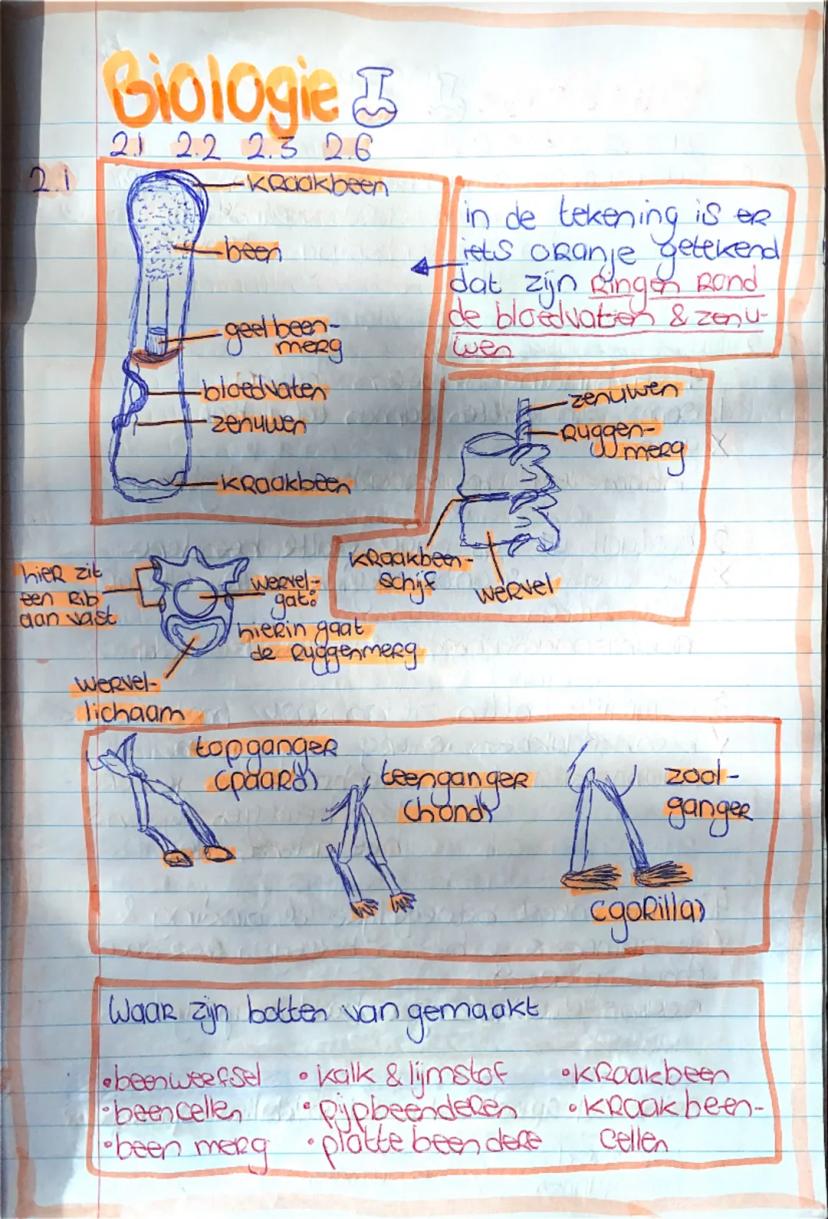 Biologie
2.1 2.2 2.3 2.6
2.1
kraakbeen
been
geel been-
merg
bloedvaten
zenuwen
kraakbeen
in de tekening is er
iets oranje getekend
dat zijn Ringen rond
de bloedvaten & zenu-
wen
zenuwen
Ruggen-
merg
kraakbeen-
schijf
wervel
hier zit
een rib
aan vast
wervel-
gat:
hierin gaat
de ruggenmerg
wervel-
lichaam
topganger
(paard)
teenganger
(hond)
zool-
ganger
(gorilla)
Waar zijn botten van gemaakt
• beenweefsel
• beencellen
• been merg
• kalk & lijmstof
• pijpbeenderen
• platte been dere
• kraakbeen
• kraak been-
cellen